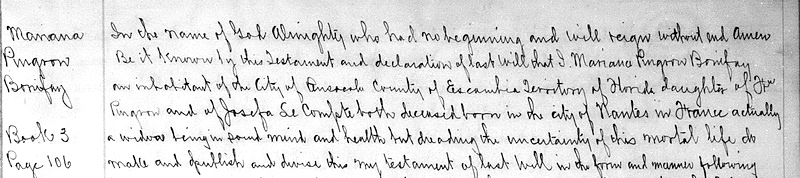 Mariana
Pingrow
Bonifay
Book 3
Page 106
In the name of God Almighty who had no beginning and will reign without end Amen
Be it known by this Testament and declaration of last will that I Mariana Pingrow Bonifay
an inhabitant of the City of Pensacola County of Escambia Territory of Florida daughter of
Pingrow and of Josefa Le Compte both deceased born in the city of Nantes in France actually
a widow being in sound mind and health but dreading the uncertainty of this mortal life do
make and publish and devise this my testament of last will in the form and manner following